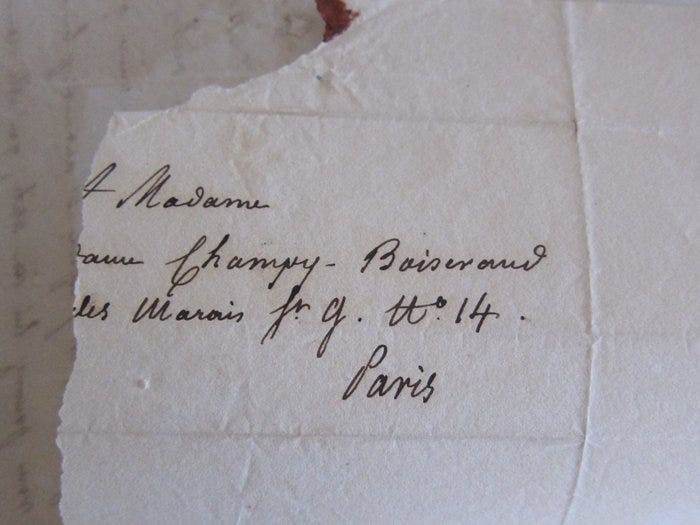 A Madame
dame Champy-Boiseraud
des Marais fr g. No. 14.
Paris